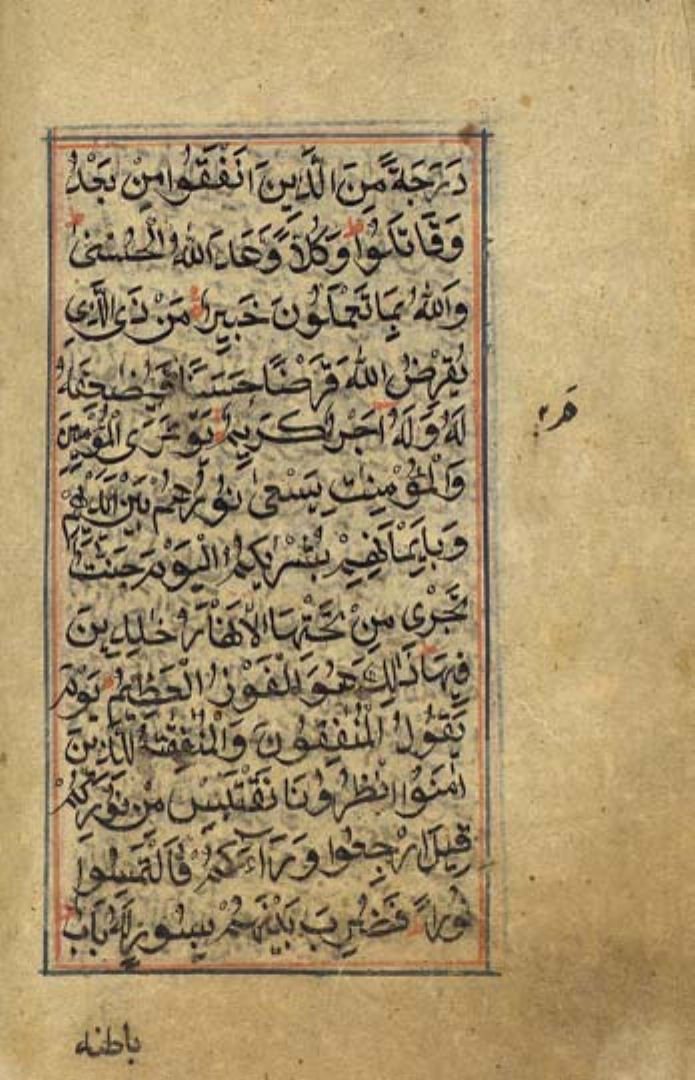 دَرَجَةً مِّنَ الَّذِينَ اَنْفَقُوا مِنْ بَعْدُ
وَقَاتَلُوْا ط وَكُلاًّ وَّعَدَ اللّٰهُ الْحُسْنٰى ط
وَاللّٰهُ بِمَا تَعْمَلُونَ خَبِيرٌ مَنْ ذَى الَّذِى
يُقْرِضُ اللّٰهَ قَرْضًا حَسَنًا فَيُضٰعِفَهُ
لَهُ وَلَهُ اَجْرٌ كَرِيمٌ يَوْمَ تَرَى الْمُؤْمِنِينَ
وَالْمُؤْمِنٰتِ يَسْعٰى نُورُهُمْ بَيْنَ اَيْدِيهِمْ
وَبِاَيْمَانِهِمْ بُشْرٰىكُمُ الْيَوْمَ جَنّٰتٌ
تَجْرِى مِنْ تَحْتِهَا الْاَنْهَارُ خٰلِدِينَ
فِيهَا ذَالِكَ هُوَ الْفَوْزُ الْعَظِيمُ يَوْمَ
يَقُولُ الْمُنٰفِقُونَ وَالْمُنٰفِقٰتُ لِلَّذِينَ
اٰمَنُوا انْظُرُونَا نَقْتَبِسْ مِنْ نُورِكُمْ
قِيلَ ارْجِعُوا وَرَآءَكُمْ فَالْتَمِسُوا
نُوراً فَضُرِبَ بَيْنَهُمْ بِسُورٍ لَّهُ بَابٌ ط
باطنه